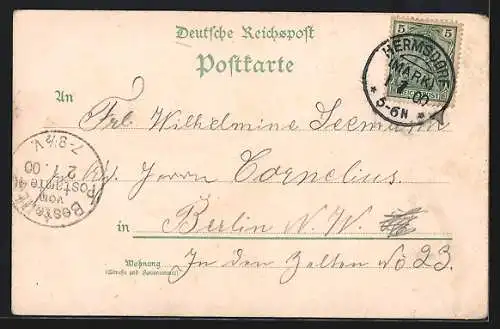 Deutsche Reichspost
Postkarte
5 5
HERMSDORF
(MARK)
00
* 5-6N *
An
Frl. Wilhelmine Seemann
Herrn Cornelius.
in Berlin N. W.
Wohnung
(Straße und Hausnummer)
In den Zelten No 23.
Bestellt
vom
Postamte
2 7. 00
7-8¼ V.